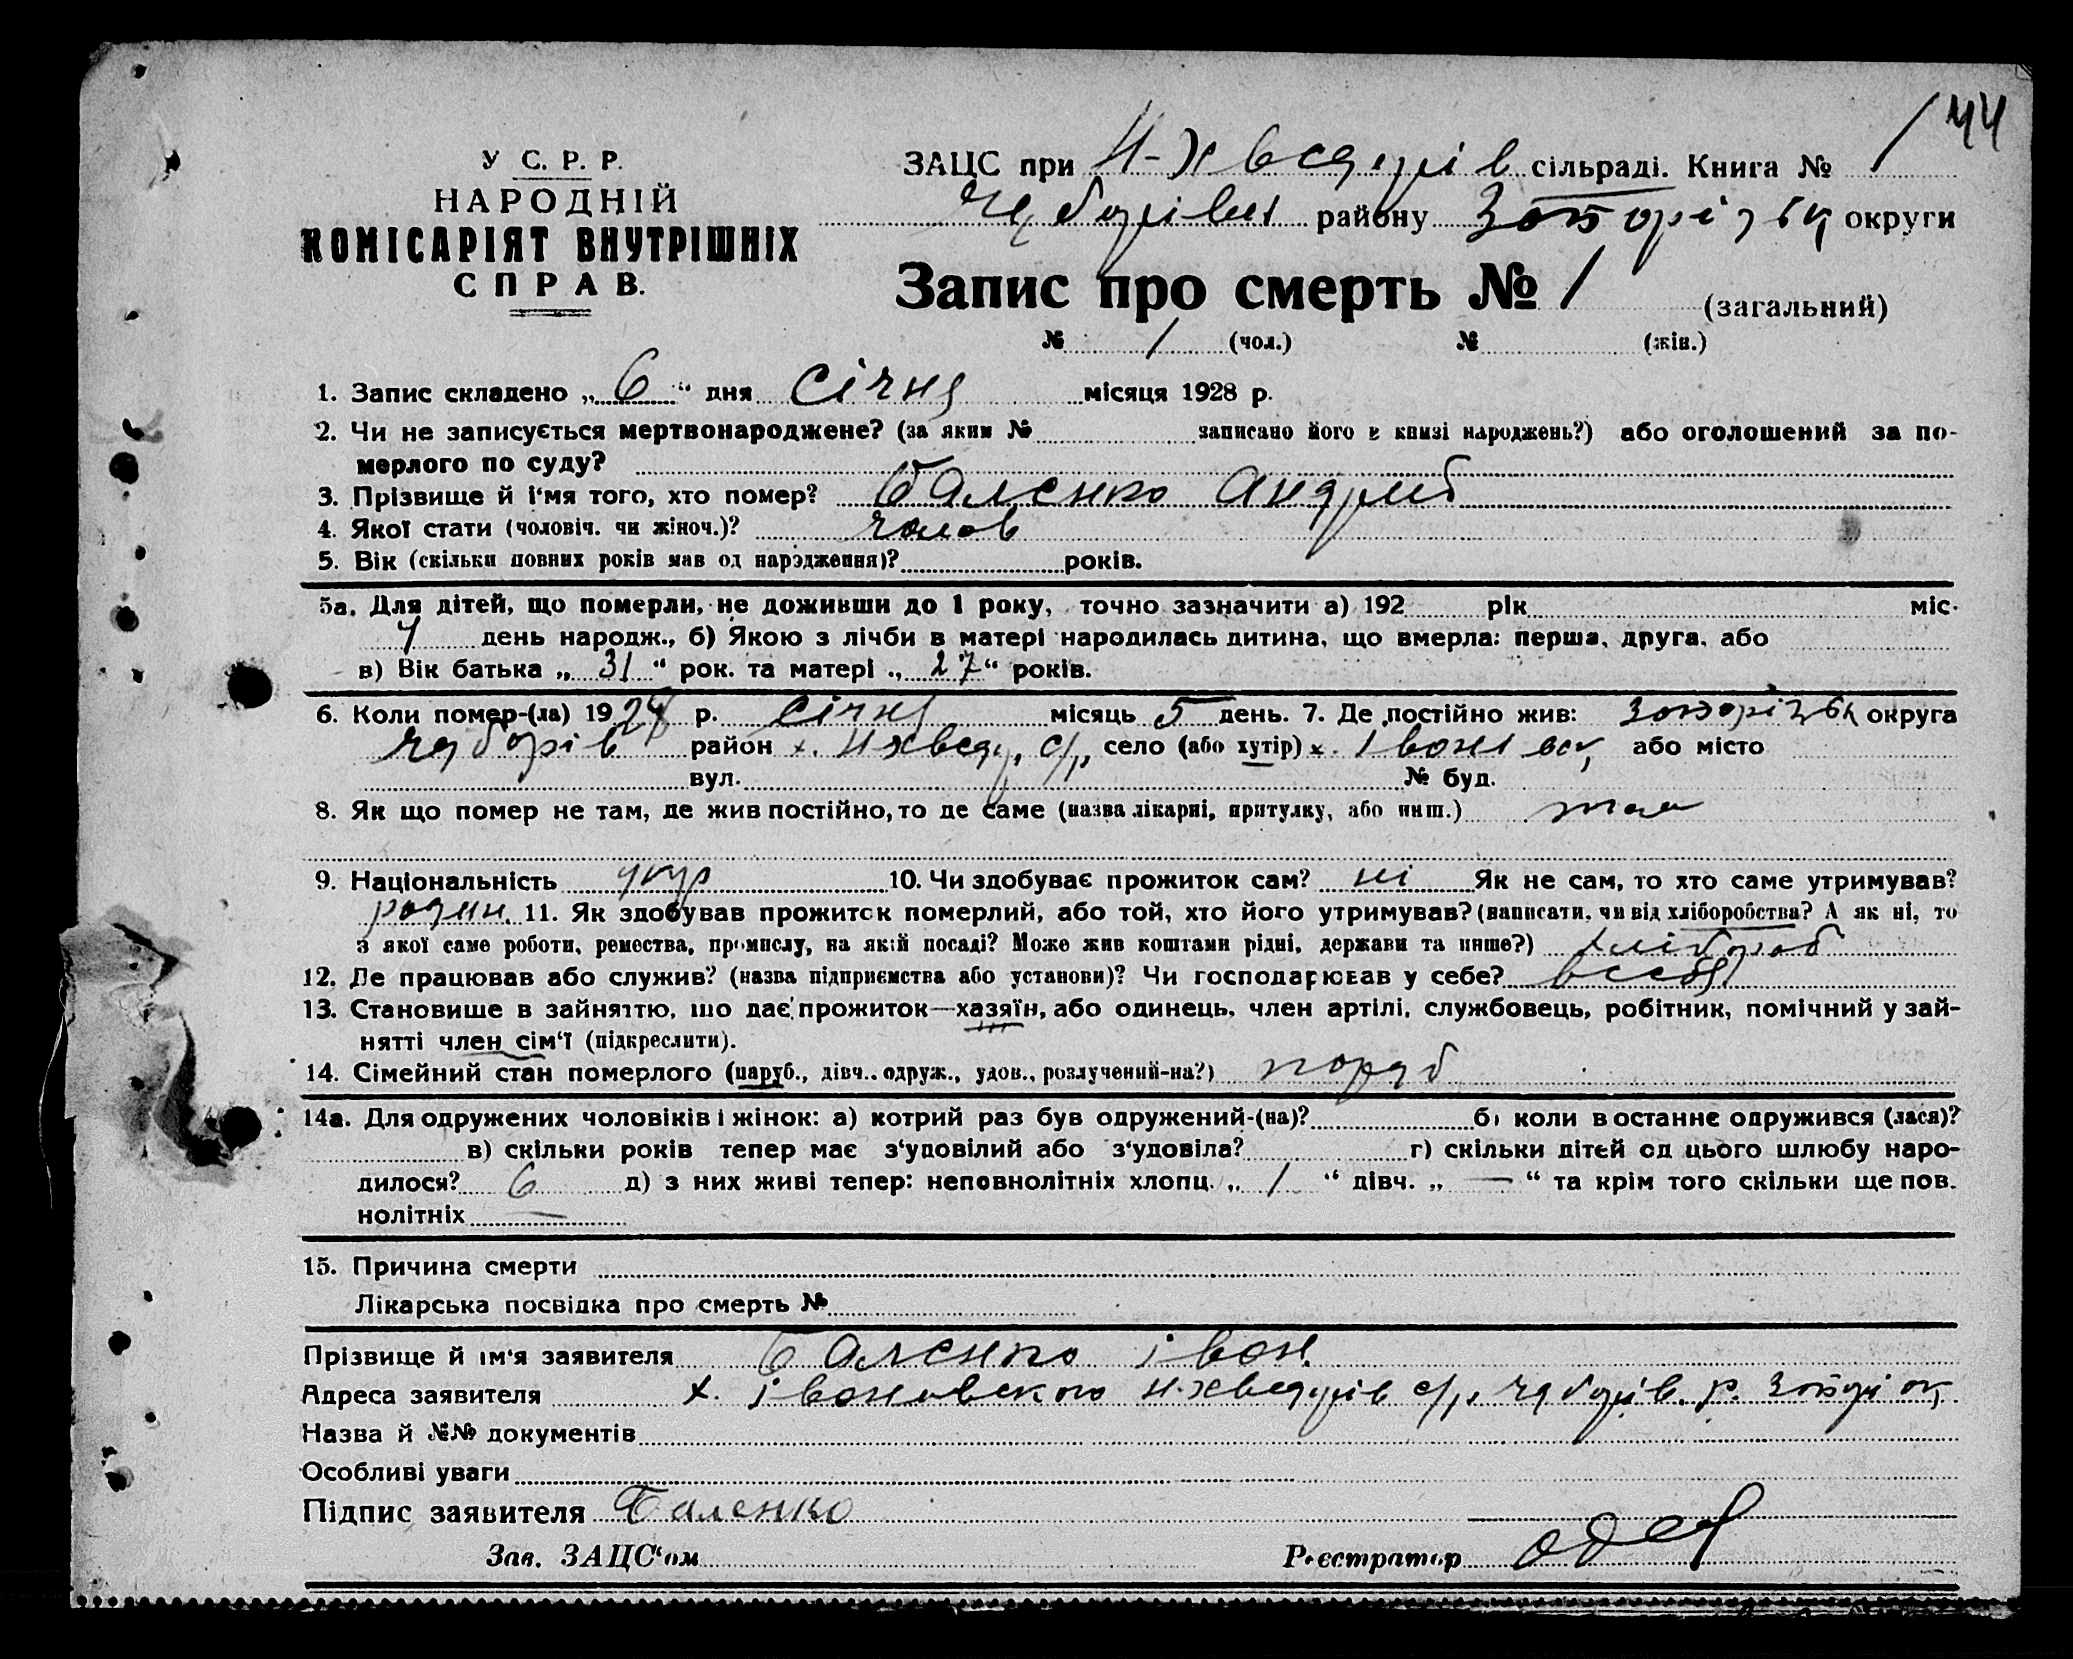 144
У С. Р. Р.
НАРОДНІЙ
КОМІСАРІЯТ ВНУТРІШНІХ
СПРАВ.
ЗАЦС при Н-Хведурів сільраді. Книга № 1
Чубарівськ району Запорізьк округи
Запис про смерть № 1 (загальний)
№ 1 (чол.) № (жін.)
1. Запис складено „ 6 “ дня січня місяця 1928 р.
2. Чи не записується мертвонароджене? (за яким № записано його в книзі народжень?) або оголошений за по-
мерлого по суду?
3. Прізвище й і‘мя того, хто помер? Баленко Андрій
4. Якої стати (чоловіч. чи жіноч.)? чолов
5. Вік (скільки повних років мав од народження)? років.
5а. Для дітей, що померли, не доживши до 1 року, точно зазначити а) 192 рік міс.
день народж., б) Якою з лічби в матері народилась дитина, що вмерла: перша, друга, або
в) Вік батька „ 31 “ рок. та матері „ 27 “ років.
6. Коли помер-(ла) 1928 р. січня місяць 5 день. 7. Де постійно жив: запорізьк округа
чубарів район х. Н хведу, с/р, село (або хутір) х. Івонівск, або місто
вул. № буд.
8. Як що помер не там, де жив постійно, то де саме (назва лікарні, притулку, або инш.) там
9. Національність укр 10. Чи здобуває прожиток сам? ні Як не сам, то хто саме утримував?
родин 11. Як здобував прожиток померлий, або той, хто його утримував? (написати, чи від хліборобства? А як ні, то
з якої саме роботи, ремества, промислу, на якій посаді? Може жив коштами рідні, держави та инше?) хлібороб
12. Де працював або служив? (назва підприємства або установи)? Чи господарював у себе? в себе
13. Становище в зайняттю, що дає прожиток—хазяїн, або одинець, член артілі, службовець, робітник, помічний у зай-
нятті член сім‘ї (підкреслити).
14. Сімейний стан померлого (паруб., дівч., одруж., удов., розлучений-на?) паруб
14а. Для одружених чоловіків і жінок: а) котрий раз був одружений-(на)? б) коли в останнє одружився (лася)?
в) скільки років тепер має з‘удовілий або з‘удовіла? г) скільки дітей од цього шлюбу наро-
дилося? 6 д) з них живі тепер: неповнолітніх хлопц. „ 1 “ дівч. „ — “ та крім того скільки ще пов.
нолітніх —
15. Причина смерти
Лікарська посвідка про смерть №
Прізвище й ім‘я заявителя Баленко Івон
Адреса заявителя х. Івоновского Н-хведурів с/р. чубарів. р. Запорі ок
Назва й №№ документів
Особливі уваги
Підпис заявителя Баленко
Зав. ЗАЦС‘ом Реєстратор